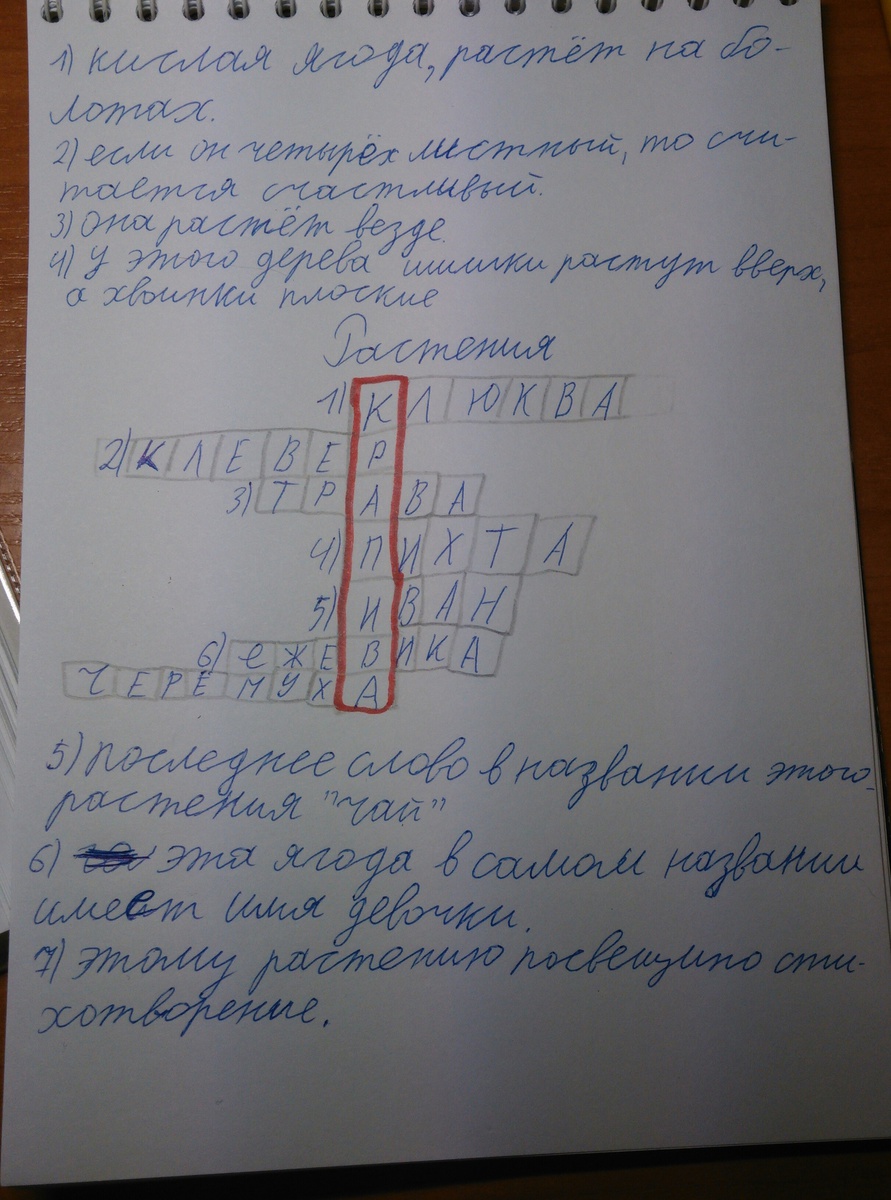 1) кислая ягода, растёт на бо-
лотах.
2) если он четырёхлистный, то счи-
тается счастливый.
3) Она растёт везде.
4) У этого дерева шишки растут вверх,
а хвоинки плоские
Растения
1) КЛЮКВА
2) КЛЕВЕР
3) ТРАВА
4) ПИХТА
5) ИВАН
6) ЕЖЕВИКА
ЧЕРЁМУХА
5) последнее слово в названии этого
растения "чай"
6) эта ягода в самом названии
имеет имя девочки.
7) этому растению посвещино сти-
хотворение.